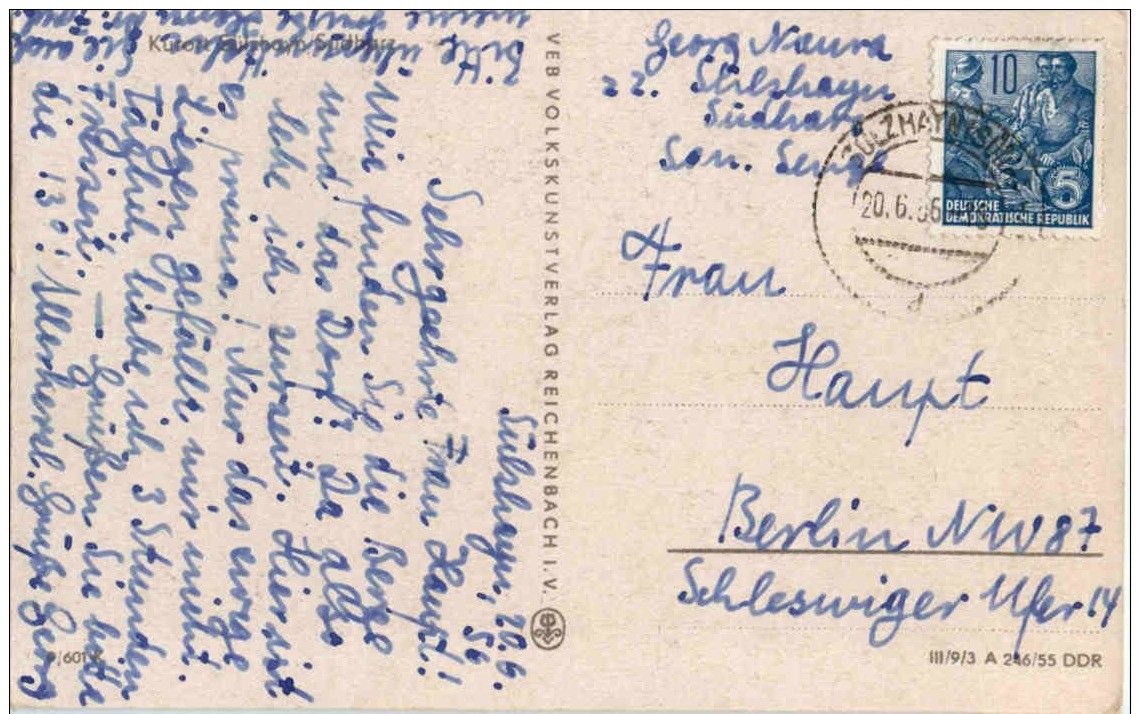 Kurort Sülzhayn Südharz
Sülzhayn, 20.6.
56.
Sehrgeehrte Frau Haupt!!
Wie finden Sie die Berge
und das Dorf? Da also
lebe ich zurzeit. Hier ist
es prima! Nur das ewige
Liegen gefällt mir nicht
Täglich habe ich 3 Stunden
— Grüßen Sie bitte
die 13⁰! Allerherzl. Grüße Georg
Bitte
VEB VOLKSKUNSTVERLAG REICHENBACH I. V.
Georg Naura
zz. Sülzhayn
Südharz
San.
10
5
DEUTSCHE
DEMOKRATISCHE REPUBLIK
SÜLZHAYN
20.6.56
d
Frau
Haupt
Berlin NW87
Schleswiger Ufer 14
III/9/3 A 246/55 DDR